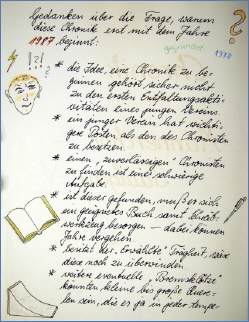 Gedanken über die Frage, warum
diese Chronik erst mit dem Jahre
1987 beginnt:
gegründet
1978
!?!
?
* die Idee, eine Chronik zu be-
ginnen gehört sicher nicht
zu den ersten Entfaltungsakti-
vitäten eines jungen Vereins.
* ein junger Verein hat wichti-
gere Posten als den des Chronisten
zu besetzen.
* einen "zuverlässigen" Chronisten
zu finden ist eine schwierige
Aufgabe.
* ist dieser gefunden, muß er sich
ein geeignetes Buch samt Schreib-
werkzeug besorgen - dabei können
Jahre vergehen
* besitzt der "Erwählte" Trägheit,
diese noch zu überwinden
* weitere eventuelle "Bremsklötze"
könnten kleine bis große Quere-
len sein, die es ja in jeder